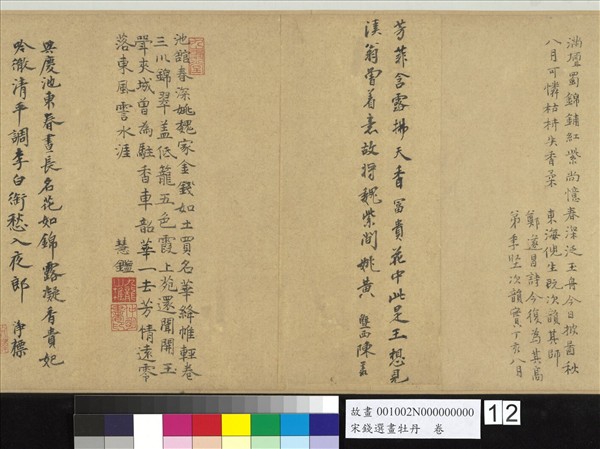 滿壇蜀錦鋪紅紫尚憶春深泛玉舟今日披圖秋
八月可憐枯枿失香柔
東海倪生既次韻其師
鄭遂昌詩今復為其高
第季堅次韻實丁亥八月
芳蕤含露拂天香富貴花中此是王想見
溪翁曾着意故將魏紫間姚黃
陳
池館春深姚魏家金錢如土買名華絳帷輕卷
三川錦翠蓋低籠五色霞上苑還聞開玉
聲夾城曾為駐香車韶華一去芳情遠零
落東風雲水涯
慧鑑
興慶池東春晝長名花如錦露凝香貴妃
吟徹清平調李白銜愁入夜郎
淨標
故畫 001002N000000000
宋錢選畫牡丹 卷
12